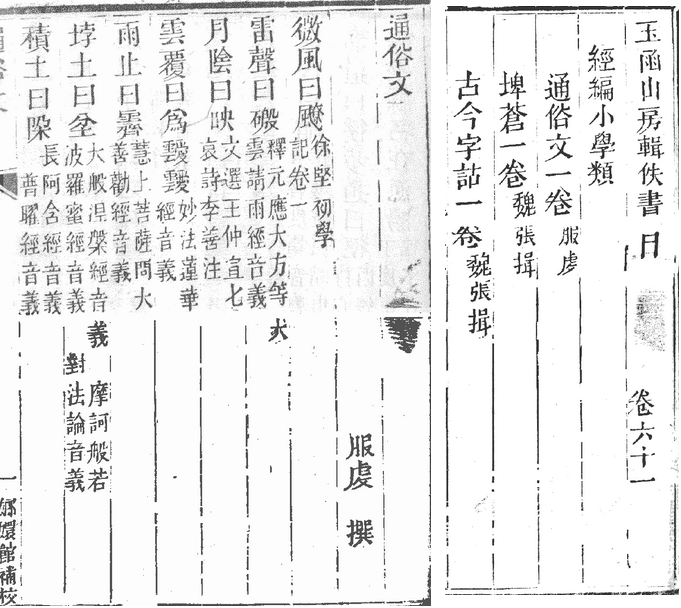 玉函山房輯佚書目 卷六十一
經編小學類
通俗文一卷 服虔
埤蒼一卷 魏張揖
古今字詁一卷 魏張揖
通俗文
服虔 撰
微風曰 徐堅初學
記卷一
雷聲曰磤 釋元應大方等大
雲請雨經音義
月陰曰映 文選王仲宣七
哀詩李善注
雲覆曰為靉靆 妙法蓮華
經音義
雨止曰霽 慧上菩薩問大
善勸經音義
土曰坌 大般湼槃經音義 摩訶般若
波羅蜜經音義 對法論音義
積土曰 長阿含經音義
普曜經音義
一 嫏嬛館補校